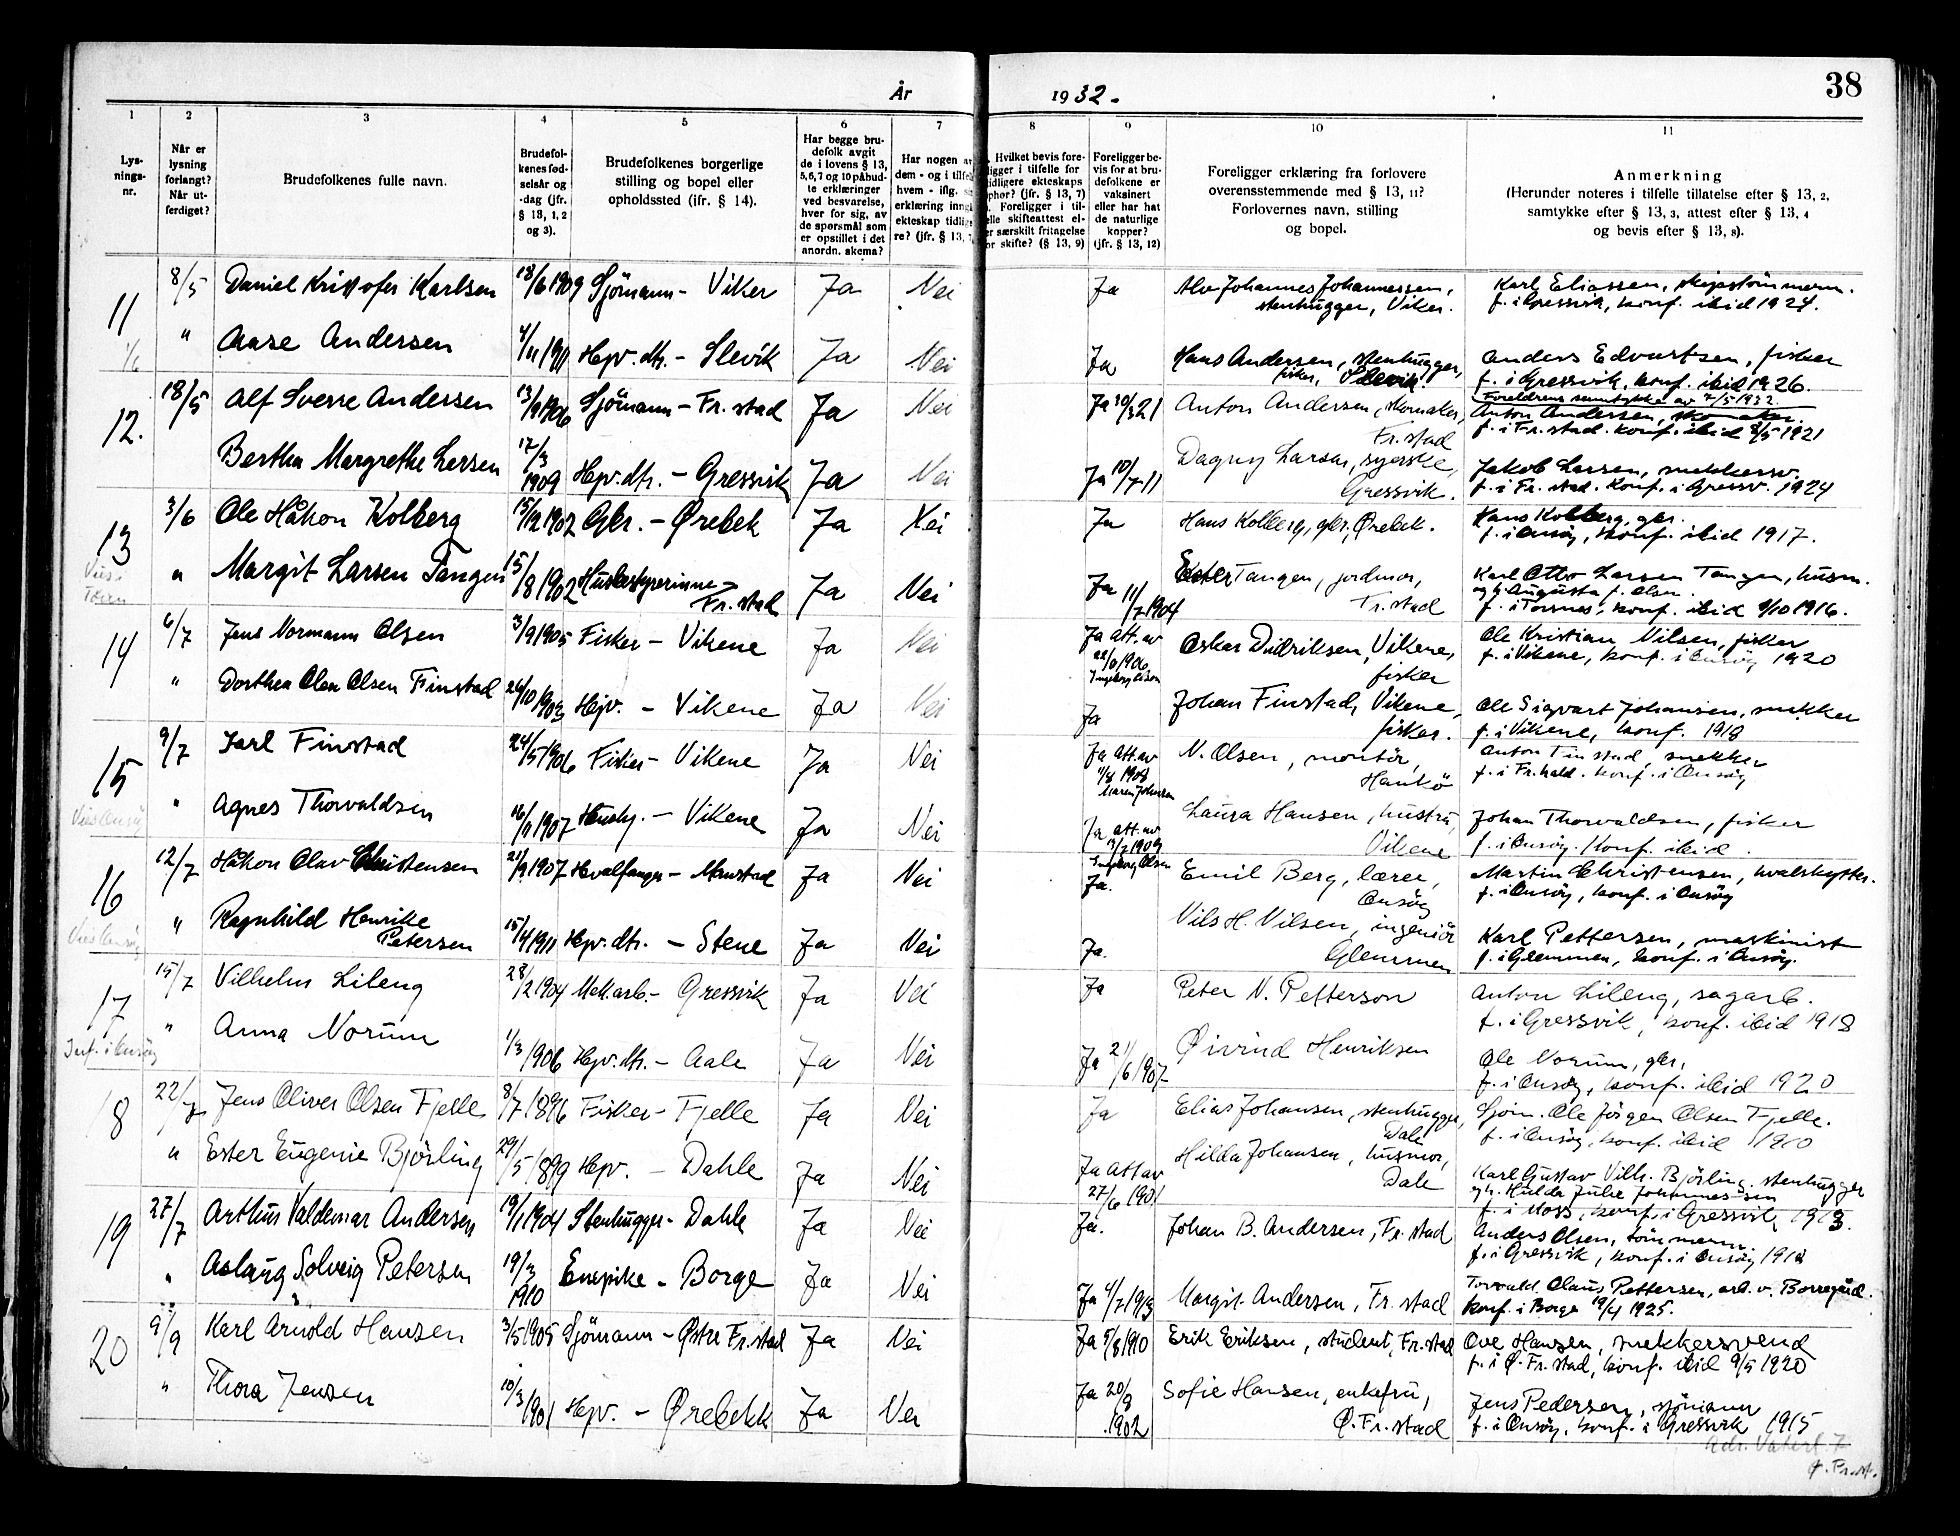 38
År 1932.
1 2 3 4 5 6 7 8 9 10 11
Lys-
nings-
nr.
Når er
lysning
forlangt?
Når ut-
ferdiget?
Brudefolkenes fulle navn.
Brudefol-
kenes fød-
selsår og
-dag (jfr.
§ 13, 1, 2
og 3).
Brudefolkenes borgerlige
stilling og bopel eller
opholdssted (ifr. § 14).
Har begge bru-
defolk avgit
de i lovens § 13,
5, 6, 7 og 10 påbud-
te erklæringer
ved besvarelse,
hver for sig, av
de spørsmål som
er opstillet i det
anordn. skema?
Har nogen av
dem - og i tilfe
hvem - iflg. s
erklæring inng
ekteskap tidlig
re? (jfr. § 13,
Hvilket bevis fore-
ligger i tilfelle for
tidligere ekteskaps
ophør? (jfr. § 13, 7)
Foreligger i til-
elle skifteattest el-
er særskilt fritagelse
or skifte? (§ 13, 9)
Foreligger be-
vis for at bru-
defolkene er
vaksinert
eller har hat
de naturlige
kopper?
(jfr. § 13, 12)
Foreligger erklæring fra forlovere
overensstemmende med § 13, 11?
Forlovernes navn, stilling
og bopel.
Anmerkning
(Herunder noteres i tilfelle tillatelse efter § 13, 2,
samtykke efter § 13, 3, attest efter § 13, 4
og bevis efter § 13, 8).
11 8/5 Daniel Kristofer Karlsen 18/6 1909 Sjömann - Viker Ja Nei Ja Alv Johannes Johannessen, Karl Eliassen, skipstömmerm.
stenhugger, Viker. f. i Gressvik, konf. ibid 1924.
1/6 " Aase Andersen 4/11 1911 Hpv. dtr. - Slevik Ja Nei Ja Hans Andersen, stenhugger, Anders Edvartsen, fisker
fisker, Slevik. f. i Gressvik, konf. ibid 1926.
Foreldrens samtykke av 7/5 1932.
12. 18/5 Alf Sverre Andersen 13/9 1906 Sjömann - Fr. stad Ja Nei Ja 30/3 21 Anton Andersen, skomaker, Anton Andersen, skomaker
Fr. stad f. i Fr. stad. konf. ibid 8/5 1921
Bertha Margrethe Larsen 17/3 1909 Hpv. dtr. - Gressvik Ja Nei Ja 10/7 11 Dagny Larsen, syerske, Jakob Larsen, snekkersv.
Gressvik. f. i Fr. stad. konf. i Gressv. 1924
13 3/6 Ole Håkon Kolberg 15/12 1902 Gbr. - Ørebek Ja Nei Ja Hans Kolberg, gbr., Ørebek. Hans Kolberg, gbr.
f. i Onsöy, konf. ibid 1917.
" Margit Larsen Tangen 15/8 1902 Husbestyrerinne - Ja Nei Ja 11/7 1904 Ester Tangen, jordmor, Karl Otto Larsen Tangen, husm.
Fr. stad Fr. stad og h. Augusta f. Olsen.
f. i Torsnes, konf. ibid 8/10 1916.
14 6/7 Jens Normann Olsen 3/9 1905 Fisker - Vikene Ja Nei Ja att. av Oskar Didriksen, Vikene, Ole Kristian Nilsen, fisker
fisker f. i Vikene, konf. i Onsöy 1920
" Dorthea Olea Olsen Finstad 26/10 1903 Hpv. - Vikene Ja Nei Ja Johan Finstad, Vikene, Ole Sigvart Johansen, snekker
fisker. f. i Vikene, konf. 1918
15 9/7 Karl Finstad 24/5 1906 Fisker - Vikene Ja Nei Ja att. av N. Olsen, montör, Anton Finstad, snekker
4/8 1908 Hankö f. i Fr.hald. konf. i Onsöy
Vies Onsöy " Agnes Thorvaldsen 16/11 1907 Hushj. - Vikene Ja Nei Ja att. av Laura Hansen, hustru, Johan Thorvaldsen, fisker
Vikene f. i Onsöy. Konf. ibid.
16 12/7 Håkon Olav Christensen 21/9 1907 Hvalfanger - Manstad Ja Nei Ja. Emil Berg, lærer, Martin Christensen, hvalskytter.
Onsöy f. i Onsöy, konf. i Onsöy
Vies Onsöy " Ragnhild Henrikke 15/4 1911 Hpv. dtr. - Stene Ja Nei Ja. Nils H. Nilsen, ingeniör Karl Pettersen, maskinist
Petersen Glemmen f. i Glemmen, konf. i Onsöy.
17 15/7 Vilhelm Lileng 28/2 1904 Mek.arb. - Gressvik Ja Nei Ja Peter N. Petterson Anton Lileng, sagarb.
f. i Gressvik, konf. ibid 1918
" Anna Norum 1/3 1906 Hpv. dtr. - Aale Ja Nei Ja 21/6 1907 Øivind Henriksen Ole Norum, gbr.,
f. i Onsöy, konf. ibid 1920
18 22/7 Jens Oliver Olsen Fjelle 8/7 1896 Fisker - Fjelle Ja Nei Ja Elias Johansen, stenhugger, Sjöm. Ole Jörgen Olsen Fjelle.
Dale f. i Onsöy, konf. ibid 1910
" Ester Eugenie Björling 29/5 1899 Hpv. - Dahle Ja Nei Ja att av Hilda Johansen, husmor, Karl Gustav Vilh. Björling, stenhugger
27/6 1901 Dale og h. Hulda Julie Johannessen
f. i Moss, konf. i Gressvik 1913.
19 27/7 Arthur Valdemar Andersen 19/1 1904 Stenhugger - Dahle Ja Nei Ja. Johan B. Andersen, Fr. stad Anders Olsen, tömmerm.
f. i Gressvik, konf. i Onsöy 1918
" Aslaug Solveig Petersen 19/3 1910 Enepike - Borge Ja Nei Ja 4/7 1913 Margit Andersen, Fr. stad Torvald Claus Pettersen, arb. v. Borregård.
konf. i Borge 19/4 1925.
20 9/9 Karl Arnold Hansen 3/5 1905 Sjömann - Østre Fr. stad Ja Nei Ja 5/8 1910 Erik Eriksen, student, Fr. stad Ove Hansen, snekkersvend
f. i Ø. Fr. stad, konf. ibid 9/5 1920
" Thora Jensen 10/3 1901 Hpv. - Ørebekk Ja Nei Ja 20/8 1902 Sofie Hansen, enkefru, Jens Pedersen, sjömann
Ø. Fr. stad f. i Onsöy, konf. i Gressvik 1915
Adr. Vaterl. 7
Ø. Fr. st.